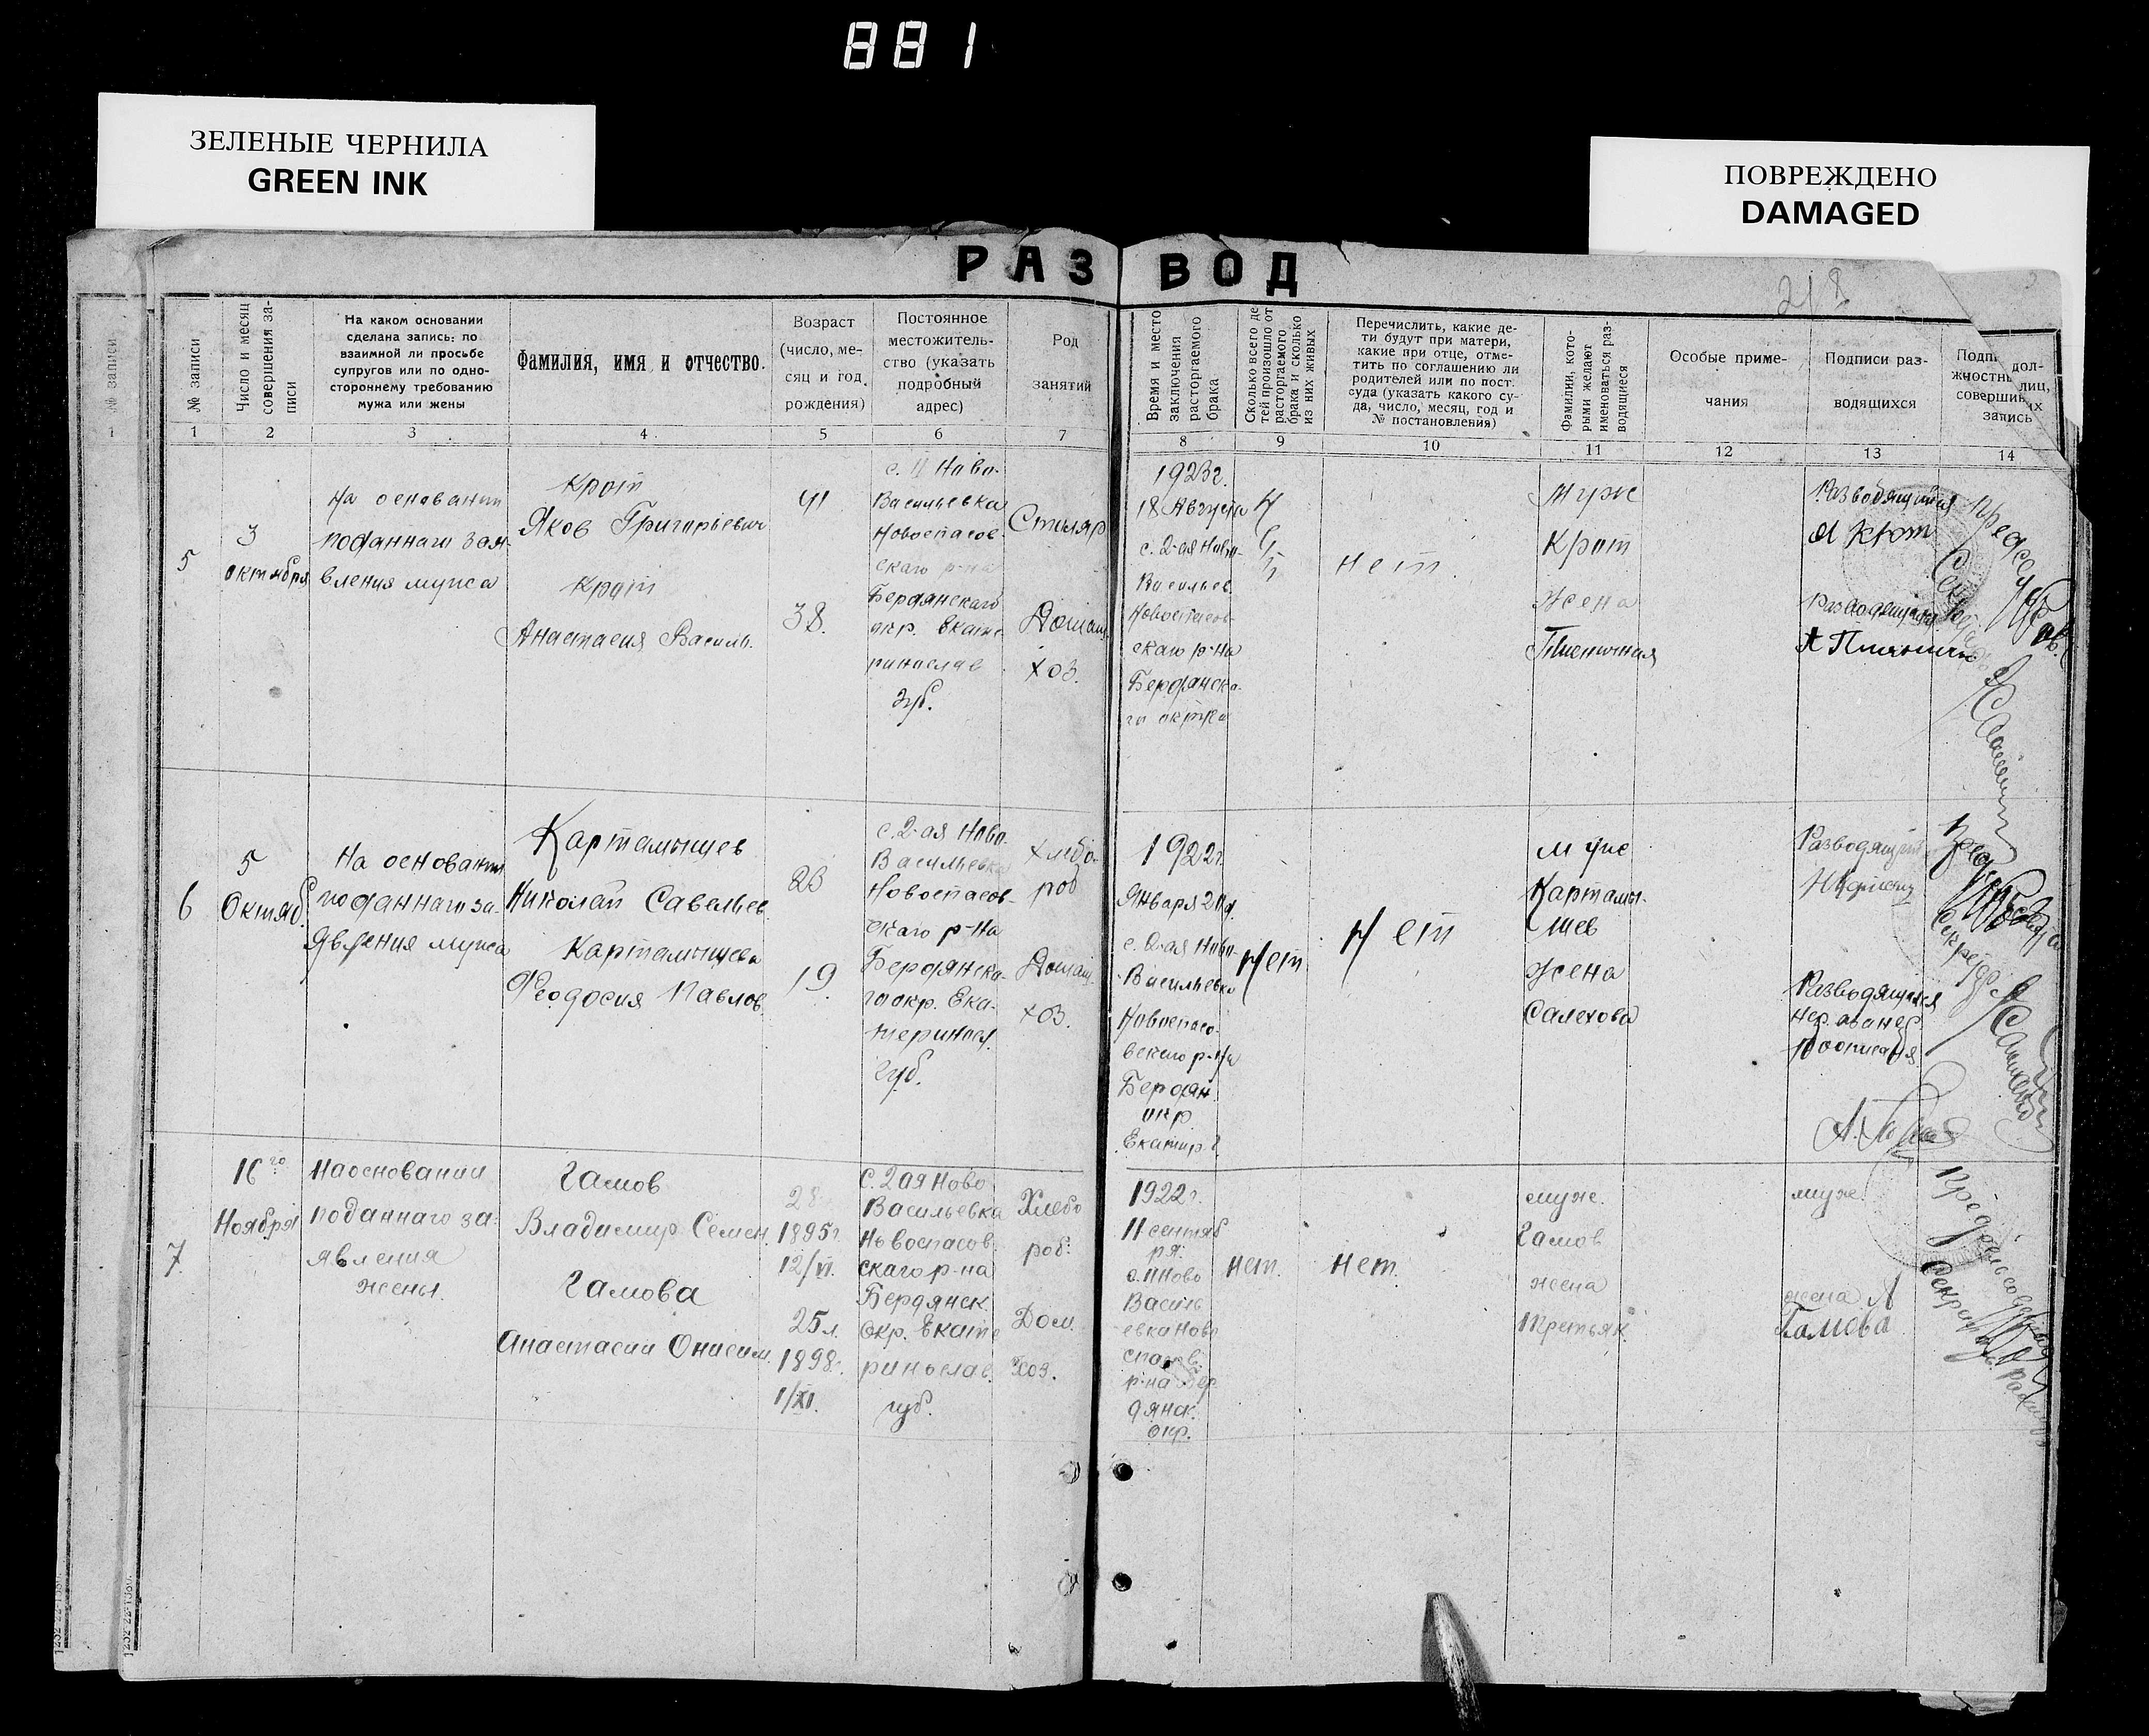 881
ЗЕЛЕНЫЕ ЧЕРНИЛА
GREEN INK
ПОВРЕЖДЕНО
DAMAGED
РАЗВОД
218
№ записи
1
№ записи
Число и месяц
совершения за-
писи
На каком основании
сделана запись: по
взаимной ли просьбе
супругов или по одно-
стороннему требованию
мужа или жены
Фамилия, имя и отчество.
Возраст
(число, ме-
сяц и год
рождения)
Постоянное
местожитель-
ство (указать
подробный
адрес)
Род
занятий
Время и место
заключения
расторгаемого
брака
Сколько всего де
тей произошло от
расторгаемого
брака и сколько
из них живых
Перечислить, какие де-
ти будут при матери,
какие при отце, отме-
тить по соглашению ли
родителей или по пост.
суда (указать какого су-
да, число, месяц, год и
№ постановления)
Фамилии, кото-
рыми желают
именоваться раз-
водящиеся
Особые приме-
чания
Подписи раз-
водящихся
дол-
жностн лиц,
соверши их
запись
1 2 3 4 5 6 7 8 9 10 11 12 13 14
5
3
октября
На основании
поданнаго зая-
вления мужа
Крот
Яков Григорьевич
Крот
Анастасия Василь.
41
38.
с. II Ново-
Васильевка
Новоспасов-
скаго р-на
Бердянскаго
окр. Екате-
ринослав
губ.
Столяр
Домаш.
хоз.
1923г.
18 Августа
с. 2-ая Ново-
Васильев.
Новоспасов-
скаго р-на
Бердянска-
го окр
нет.
Муж
Крот
Жена
Пшеничная
Разводящийся
Я Крот
6
5
Октяб.
На основании
поданнаго за-
явления мужа
Картамышев
Николай Савельев.
Картамышева
Феодосия Павлов.
23
19
с. 2-ая Ново-
Васильевка
Новоспасов-
скаго р-на
Бердянска-
го окр. Ека-
теринос.
Губ.
Хлебо-
роб
Домаш.
хоз.
1922г.
Января
с. 2-ая Ново-
Васильевка
Новоспасо-
вскаго р-на
Бердян.
окр.
Екатер. г.
Нет
Нет
муж
Картамы-
шев
Жена
Салехова
Разводящийся
Разводящаяся
7
16го
Ноября
На основании
поданнаго за-
явления
жены.
Гамов
Владимир Семен.
Гамова
Анастасии Онисим.
28
1895г.
12/VI.
25л.
1898г.
1/XI.
с. 2ая Ново
Васильевка
Новоспасов.
скаго р-на
Бердянск.
окр. Екате
ринослав.
губ.
Хлебо
роб.
Дом.
хоз.
1922г.
11 сентяб
ря.
с. II Ново
Василь
евка Ново
спасов.
р-на Бер
дянск.
окр.
нет.
нет.
муж.
Гамов
жена
Третьяк.
муж.
жена А
Гамова